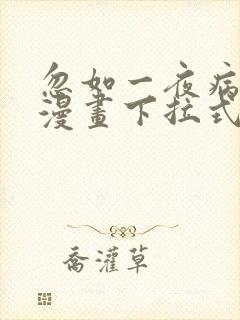 忽如一夜病
漫畫下拉式
喬灌草